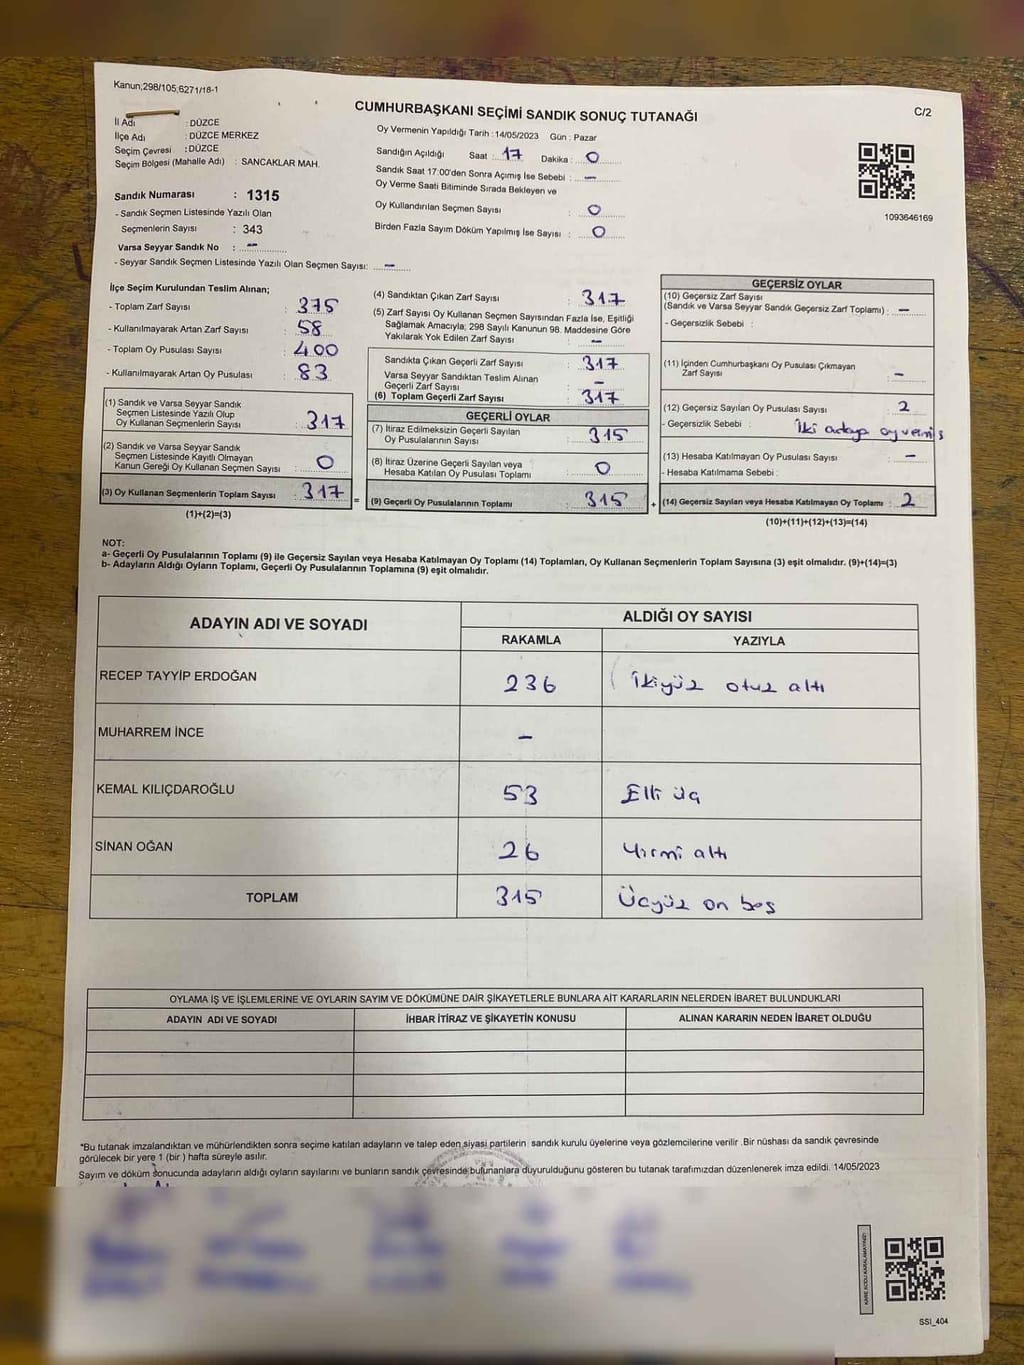 Kanun;298/105;6271/18-1
CUMHURBAŞKANI SEÇİMİ SANDIK SONUÇ TUTANAĞI
C/2
İl Adı : DÜZCE
İlçe Adı : DÜZCE MERKEZ
Seçim Çevresi : DÜZCE
Seçim Bölgesi (Mahalle Adı) : SANCAKLAR MAH.
Sandık Numarası : 1315
- Sandık Seçmen Listesinde Yazılı Olan
Seçmenlerin Sayısı : 343
Varsa Seyyar Sandık No : -
- Seyyar Sandık Seçmen Listesinde Yazılı Olan Seçmen Sayısı: -
Oy Vermenin Yapıldığı Tarih :14/05/2023 Gün : Pazar
Sandığın Açıldığı Saat : 17 Dakika : 0
Sandık Saat 17.00'den Sonra Açımış İse Sebebi : -
Oy Verme Saati Bitiminde Sırada Bekleyen ve
Oy Kullandırılan Seçmen Sayısı : 0
Birden Fazla Sayım Döküm Yapılmış İse Sayısı : 0
1093646169
İlçe Seçim Kurulundan Teslim Alınan;
- Toplam Zarf Sayısı : 375
- Kullanılmayarak Artan Zarf Sayısı : 58
- Toplam Oy Pusulası Sayısı : 400
- Kullanılmayarak Artan Oy Pusulası : 83
(1) Sandık ve Varsa Seyyar Sandık
Seçmen Listesinde Yazılı Olup
Oy Kullanan Seçmenlerin Sayısı : 317
(2) Sandık ve Varsa Seyyar Sandık
Seçmen Listesinde Kayıtlı Olmayan
Kanun Gereği Oy Kullanan Seçmen Sayısı : 0
(3) Oy Kullanan Seçmenlerin Toplam Sayısı : 317
(1)+(2)=(3)
(4) Sandıktan Çıkan Zarf Sayısı : 317
(5) Zarf Sayısı Oy Kullanan Seçmen Sayısından Fazla İse, Eşitliği
Sağlamak Amacıyla; 298 Sayılı Kanunun 98. Maddesine Göre
Yakılarak Yok Edilen Zarf Sayısı : -
Sandıkta Çıkan Geçerli Zarf Sayısı : 317
Varsa Seyyar Sandıktan Teslim Alınan
Geçerli Zarf Sayısı : -
(6) Toplam Geçerli Zarf Sayısı : 317
GEÇERLİ OYLAR
(7) İtiraz Edilmeksizin Geçerli Sayılan
Oy Pusulalarının Sayısı : 315
(8) İtiraz Üzerine Geçerli Sayılan veya
Hesaba Katılan Oy Pusulası Toplamı : 0
= (9) Geçerli Oy Pusulalarının Toplamı : 315 +
GEÇERSİZ OYLAR
(10) Geçersiz Zarf Sayısı
(Sandık ve Varsa Seyyar Sandık Geçersiz Zarf Toplamı) : -
- Geçersizlik Sebebi :
(11) İçinden Cumhurbaşkanı Oy Pusulası Çıkmayan
Zarf Sayısı : -
(12) Geçersiz Sayılan Oy Pusulası Sayısı : 2
- Geçersizlik Sebebi : İki adaya oy vermiş
(13) Hesaba Katılmayan Oy Pusulası Sayısı : -
- Hesaba Katılmama Sebebi :
(14) Geçersiz Sayılan veya Hesaba Katılmayan Oy Toplamı : 2
(10)+(11)+(12)+(13)=(14)
NOT:
a- Geçerli Oy Pusulalarının Toplamı (9) ile Geçersiz Sayılan veya Hesaba Katılmayan Oy Toplamı (14) Toplamları, Oy Kullanan Seçmenlerin Toplam Sayısına (3) eşit olmalıdır. (9)+(14)=(3)
b- Adayların Aldığı Oyların Toplamı, Geçerli Oy Pusulalarının Toplamına (9) eşit olmalıdır.
ADAYIN ADI VE SOYADI ALDIĞI OY SAYISI
RAKAMLA YAZIYLA
RECEP TAYYİP ERDOĞAN 236 İkiyüz otuz altı
MUHARREM İNCE -
KEMAL KILIÇDAROĞLU 53 Elli üç
SİNAN OĞAN 26 Yirmi altı
TOPLAM 315 Üçyüz on beş
OYLAMA İŞ VE İŞLEMLERİNE VE OYLARIN SAYIM VE DÖKÜMÜNE DAİR ŞİKAYETLERLE BUNLARA AİT KARARLARIN NELERDEN İBARET BULUNDUKLARI
ADAYIN ADI VE SOYADI İHBAR İTİRAZ VE ŞİKAYETİN KONUSU ALINAN KARARIN NEDEN İBARET OLDUĞU
*Bu tutanak imzalandıktan ve mühürlendikten sonra seçime katılan adayların ve talep eden siyasi partilerin sandık kurulu üyelerine veya gözlemcilerine verilir .Bir nüshası da sandık çevresinde
görülecek bir yere 1 (bir ) hafta süreyle asılır.
Sayım ve döküm sonucunda adayların aldığı oyların sayılarını ve bunların sandık çevresinde bulunanlara duyurulduğunu gösteren bu tutanak tarafımızdan düzenlenerek imza edildi. 14/05/2023
KARE KODU KARALAMAYINIZ!
SSI_404